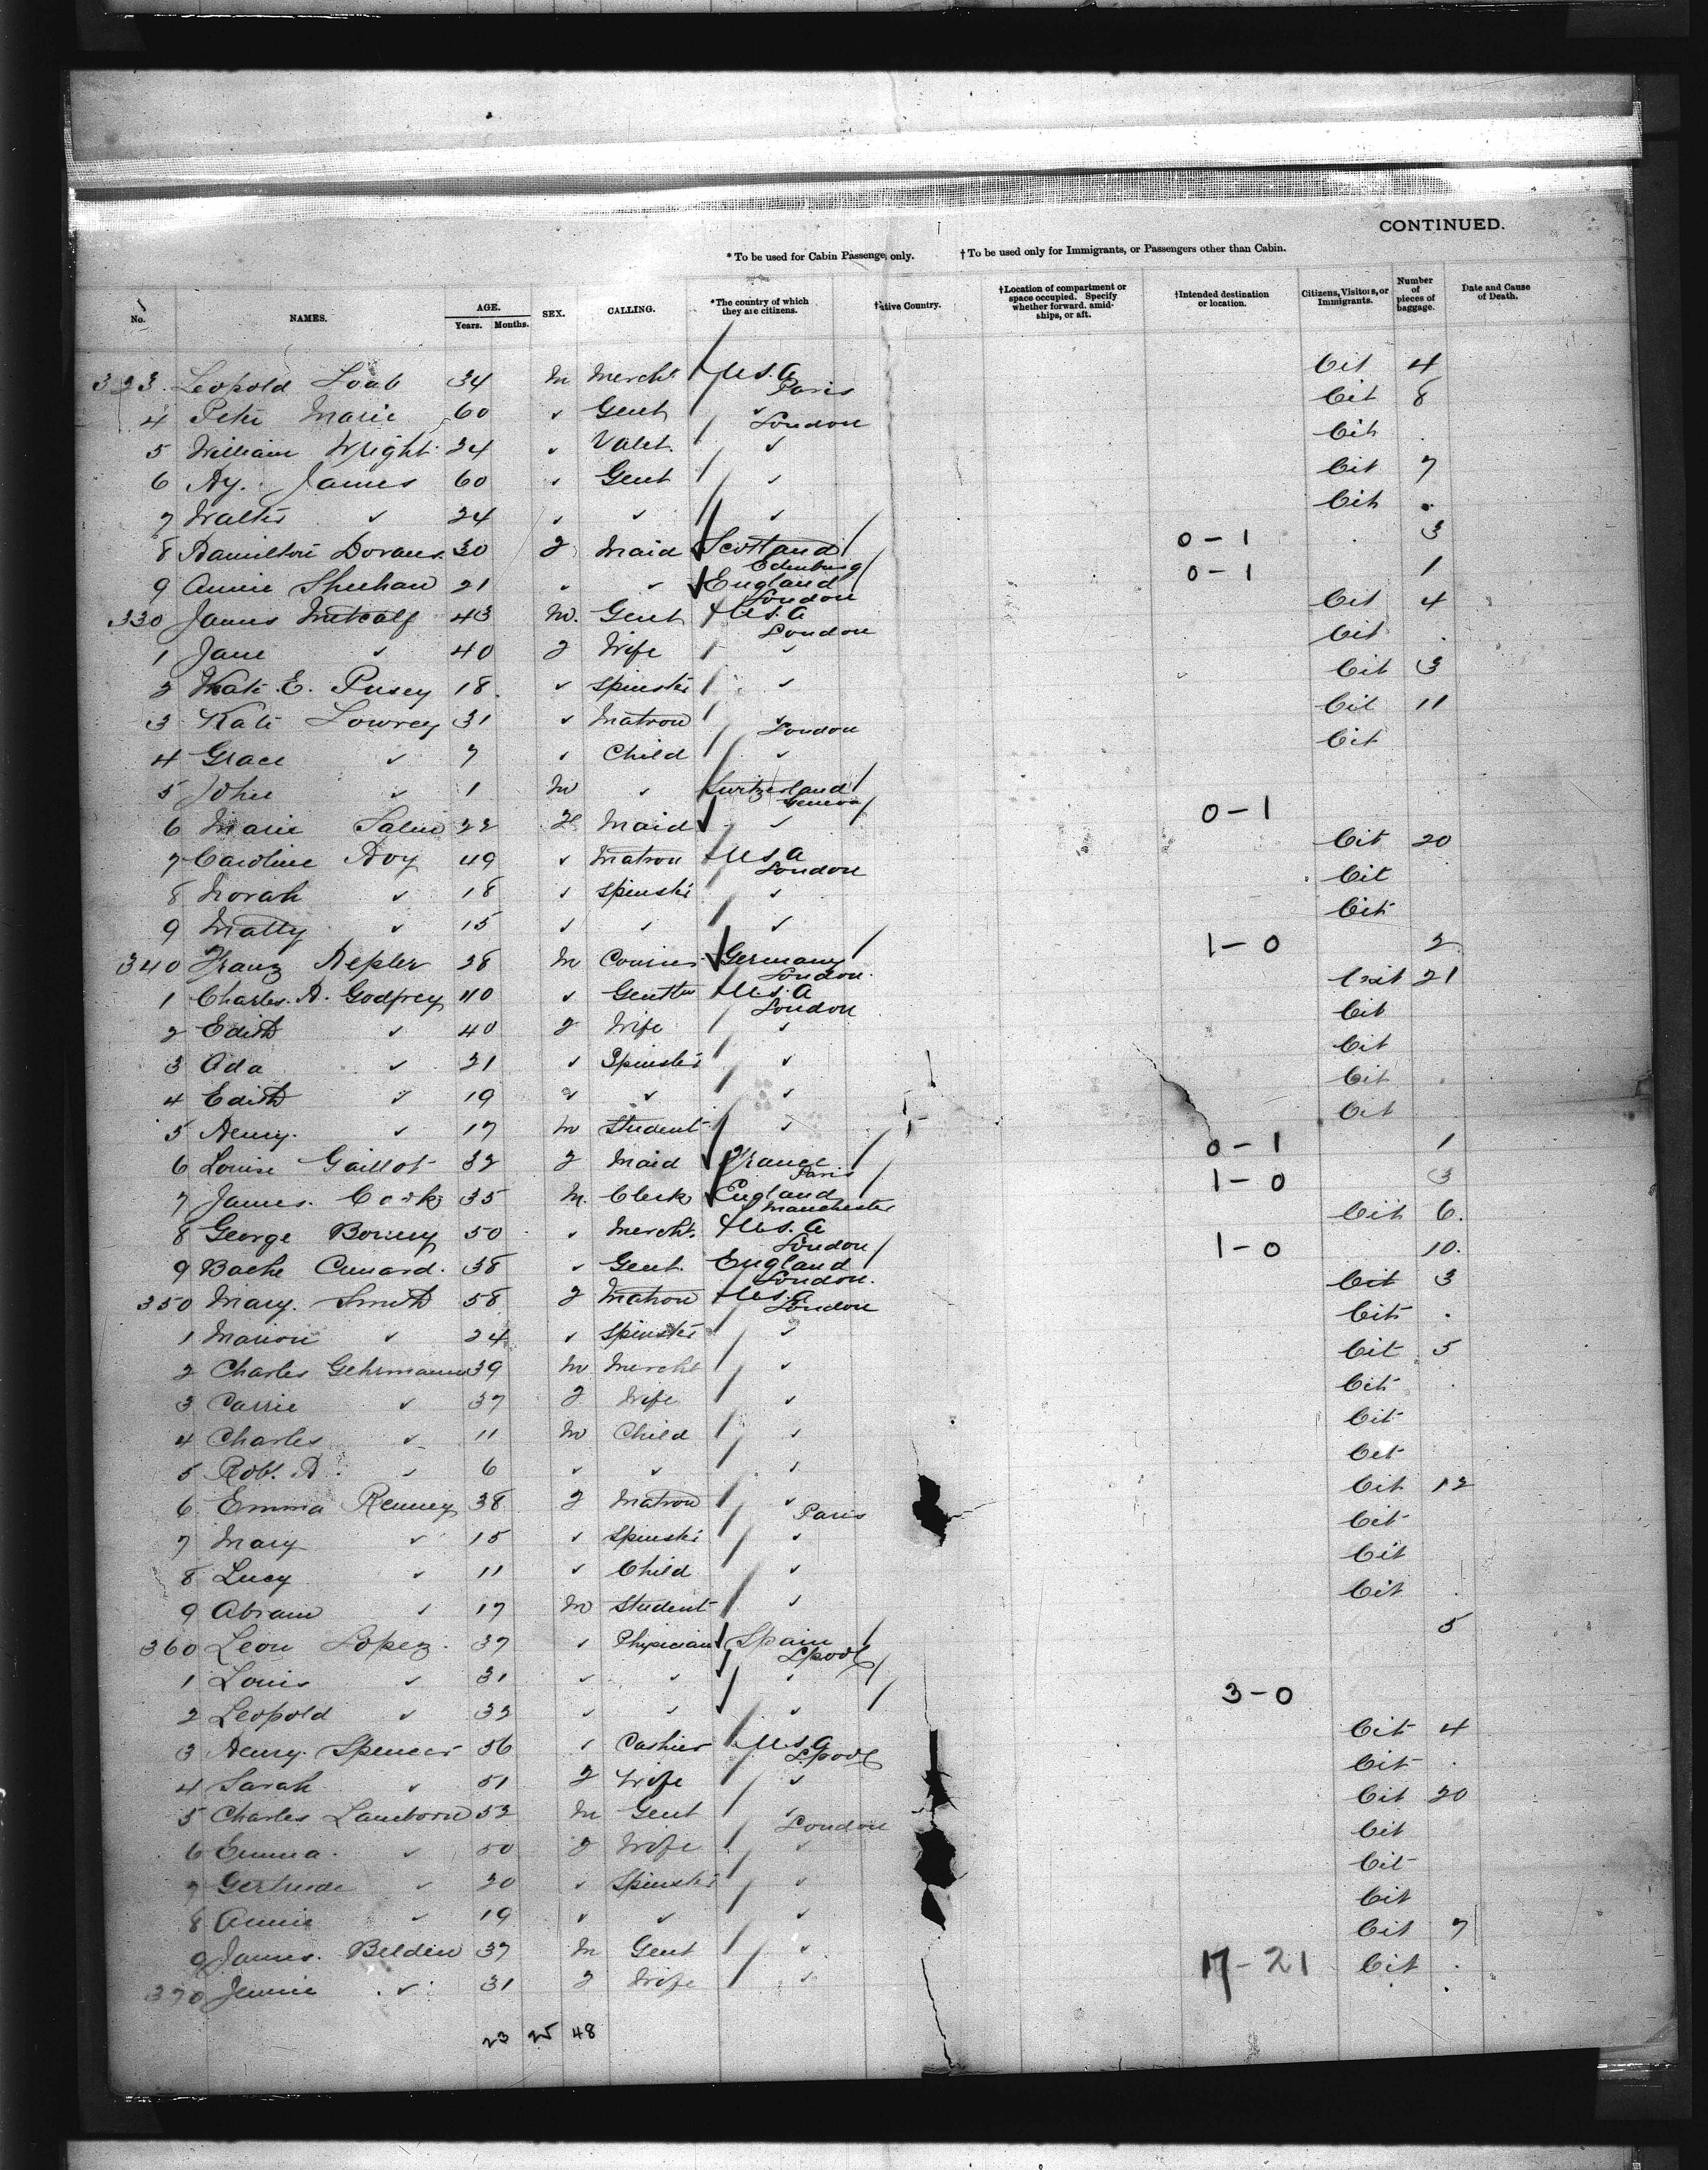 CONTINUED.
* To be used for Cabin Passenge only. † To be used only for Immigrants, or Passengers other than Cabin.
No. NAMES. AGE. Years. Months. SEX. CALLING. *The country of which they are citizens. †ative Country. †Location of compartment or space occupied. Specify whether forward, amidships, or aft. †Intended destination or location. Citizens, Visitors, or Immigrants. Number of pieces of baggage. Date and Cause of Death.
323 Leopold Loab 34 M Mercht U.S.A Paris Cit 4
4 Peter Marie 60 " Gent " London Cit 8
5 William Wright 24 " Valet " Cit
6 Hy. James 60 " Gent " Cit 7
7 Walter " 24 " " " Cit
8 Hamilton 30 F Maid Scotland Edenburg 0-1 3
9 Annie Sheehan 21 " " England London 0-1 1
330 James Metcalf 43 M. Gent U.S.A London Cit 4
1 Jane " 40 F Wife " Cit
2 Kate E. Pusey 18 " Spinster " Cit 3
3 Kate Lowrey 31 " Matron " London Cit 11
4 Grace " 7 " Child " Cit
5 John " 1 M " Switzerland Geneva
6 Marie 22 F Maid " 0-1
7 Caroline Hoy 49 " Matron U.S.A London Cit 20
8 Norah " 18 " Spinster " Cit
9 Matty " 15 " " " Cit
340 Franz Kepler 28 M Courier Germany London 1-0 2
1 Charles. H. Godfrey 40 " Gentln U.S.A London Cit 21
2 Edith " 40 F Wife " Cit
3 Ada " 21 " Spinster " Cit
4 Edith " 19 " " " Cit
5 Henry. " 17 M Student " Cit
6 Louise Gaillot 32 F Maid France Paris 0-1 1
7 James. Cook 35 M. Clerk England Manchester 1-0 3
8 George 50 " Mercht. U.S.A London Cit 6.
9 Bache Cunard. 38 " Gent. England London. 1-0 10.
350 Mary. Smith 58 F Matron U.S.A London Cit 3
1 Marion " 24 " Spinster " Cit
2 Charles Gehrmann 39 M Mercht " Cit 5
3 Carrie " 37 F Wife " Cit
4 Charles " 11 M Child " Cit
5 Robt. H. " 6 " " " Cit
6 Emma Renney 38 F Matron " Paris Cit 12
7 Mary " 15 " Spinster " Cit
8 Lucy " 11 " Child " Cit
9 Abram " 17 M Student " Cit
360 Leon Lopez. 37 " Physician Spain Lpool 5
1 Louis " 31 " " "
2 Leopold " 32 " " " 3-0
3 Henry. Spencer 56 " Cashier U.S.A Lpool Cit 4
4 Sarah " 51 F Wife " Cit
5 Charles Lamborn 52 M Gent " London Cit 20
6 Emma. " 50 F Wife " Cit
7 Gertrude " 20 " Spinster " Cit
8 Annie " 19 " " " Cit
9 James. Belden 37 M Gent " Cit 7
370 Jennie " 31 F Wife " 17-21 Cit
23 25 48